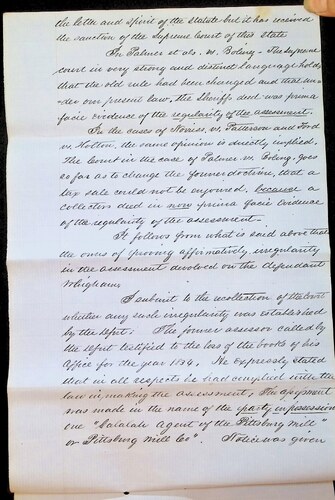 the letter and spirit of the statute but it has received
the sanction of the Supreme Court of this State
In Palmer et als. vs. Boling - The Supreme
court in very strong and distinct language holds
that the old rule had been changed and that un-
der our present law, the Sheriffs deed was prima
facie evidence of the regularity of the assessment.
In the cases of Norres, vs. Patterson and Ford
vs. Holton, the same opinion is directly implied.
The Court in the case of Palmer vs. Boling, goes
so far as to change the former doctrine, that a
tax sale could not be enjoined, because a
collectors deed in now prima facie evidence
of the regularity of the assessment.
It follows from what is said above that
the onus of proving affirmatively, irregularity
in the assessment devolved on the defendant
Whigham.
I submit to the recollection of the Court
whether any such irregularity was established
by the Defnt. The former assessor called by
the Defnt testified to the loss of the books of his
office for the year 1874. He expressly stated
that in all respects he had complied with the
law in making the assessment. This assessment
was made in the name of the party in possession
one " Agent of the Pittsburg Mill"
or Pittsburg Mill Co". Notice was given